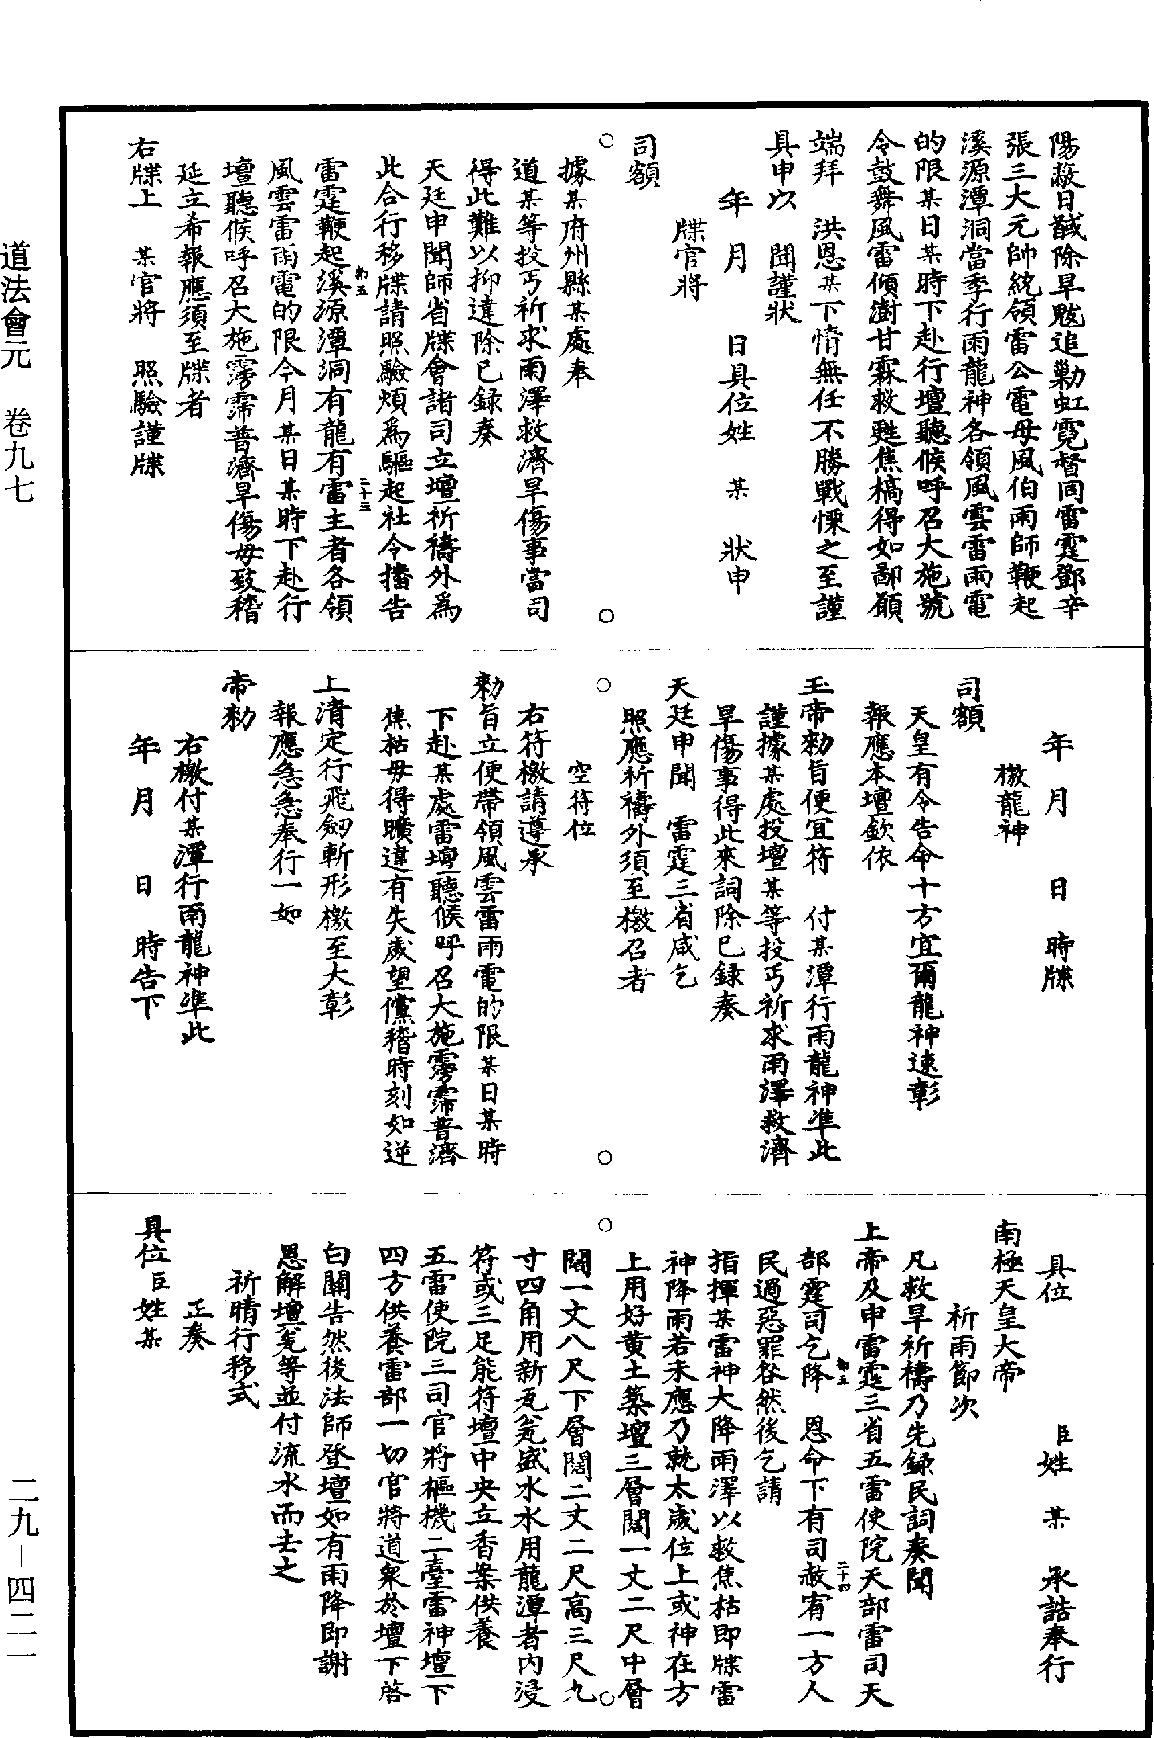 陽赦日馘除旱魃追勦虹霓督同雷霆鄧辛
張三大元帥統領雷公電母風伯雨師鞭起
溪源潭洞當季行雨龍神各領風雲雷雨電
的限某日某時下赴行壇聽候呼召大施號
令鼓舞風雷傾澍甘霖救甦焦槁得如鄙願
端拜　洪恩某下情無任不勝戰慄之至謹
具申以　聞謹狀
年　月　　日具位姓　某　狀申
牒官將
司額
據某府州縣某處奉
道某等投丐祈求雨澤救濟旱傷事當司
得此難以抑違除已錄奏
天廷申聞師省牒會諸司立壇祈禱外爲
此合行移牒請照驗煩爲驅起社令擂告
雷霆鞭起溪源潭洞有龍有雷主者各領
風雲雷雨電的限今月某日某時下赴行
壇聽候呼召大施霶霈普濟旱傷毋致稽
延立希報應須至牒者
右牒上　某官將　照驗謹牒
年　月　　日　時牒
檄龍神
司額
天皇有令告命十方宜爾龍神速彰
報應本壇欽依
玉帝勑旨便宜符　付某潭行雨龍神準此
謹據某處投壇某等投丐祈求雨澤救濟
旱傷事得此來詞除已錄奏
天廷申聞　雷霆三省咸乞
照應祈禱外須至檄召者
空符位
右符檄請遵承
勑旨立便帶領風雲雷雨電的限某日某時
下赴某處雷壇聽候呼召大施霶霈普濟
焦枯毋得曠違有失歲望儻稽時刻如逆
上清定行飛劒斬形檄至大彰
報應急急奉行一如
帝勑
右檄付某潭行雨龍神準此
年　月　　日　時告下
具位　　　臣姓　某　承誥奉行
南極天皇大帝
祈雨節次
凡救旱祈禱乃先錄民詞奏聞
上帝及申雷霆三省五雷使院天部雷司天
部霆司乞降　恩命下有司赦宥一方人
民過惡罪咎然後乞請
指揮某雷神大降雨澤以救焦枯即牒雷
神降雨若未應乃就太歲位上或神在方
上用好黄土築壇三層闊一丈二尺中層
闊一丈八尺下層闊二丈二尺高三尺九
寸四角用新瓦瓮盛水水用龍潭者内浸
符或三足能符壇中央立香案供養
五雷使院三司官將樞機二臺雷神壇下
四方供養雷部一切官將道衆於壇下啓
白關告然後法師登壇如有雨降即謝
恩解壇瓮等並付流水而去之
祈晴行移式
正奏
具位臣姓某
道法會元　卷九七
二九－四二一